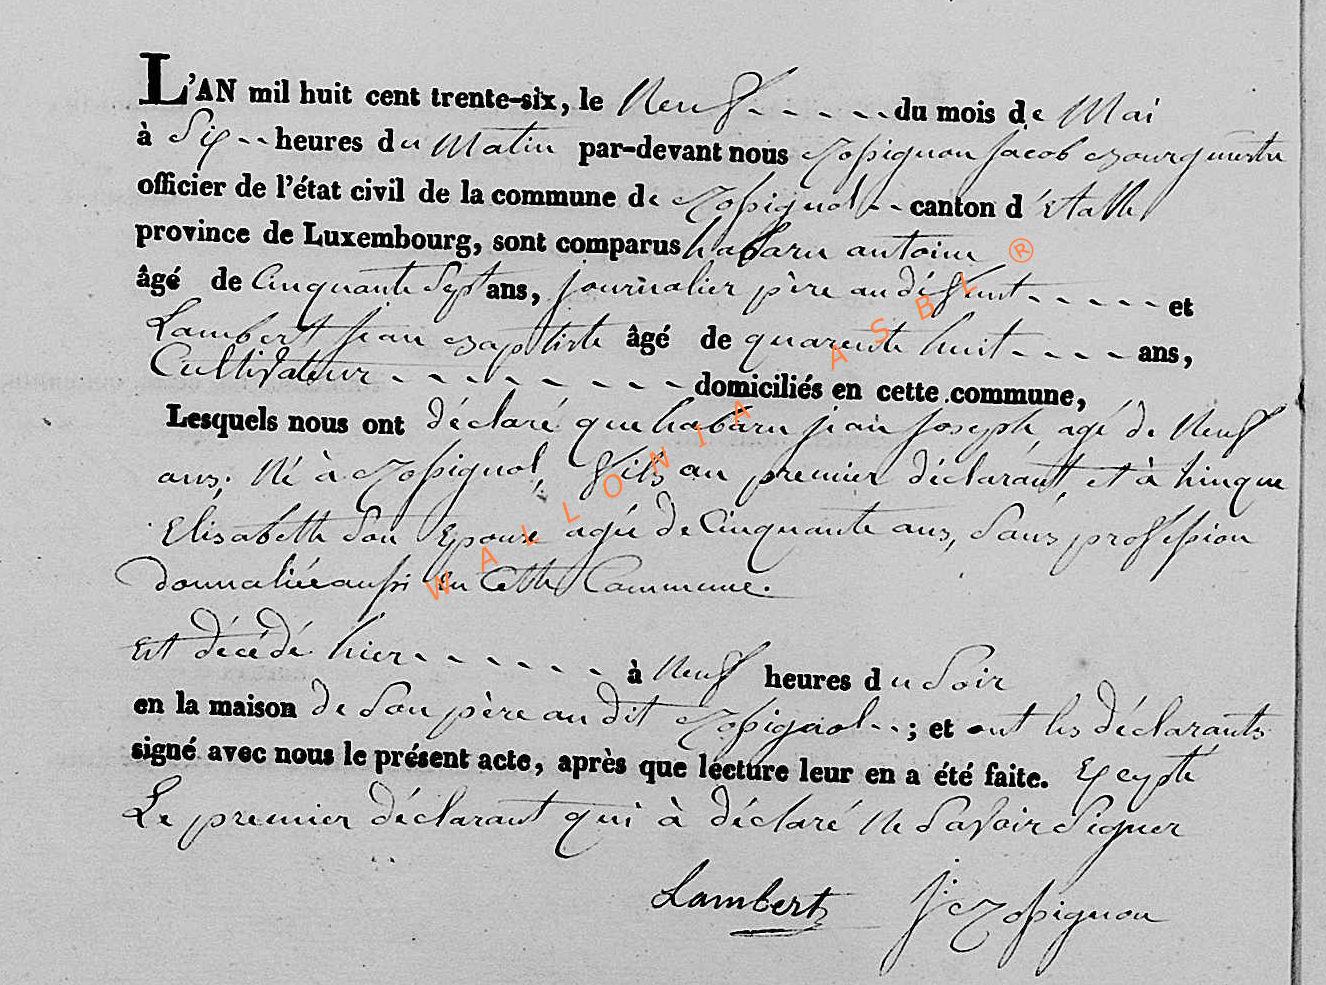 L'AN mil huit cent trente-six, le Neuf du mois de Mai
à Six heures du Matin par-devant nous Rossignon Jacob Bourgmestre
officier de l'état civil de la commune de Rossignol canton d'Etalle
province de Luxembourg, sont comparus habaru antoine
âgé de Cinquante Sept ans, journalier père au défunt et
Lambert jean Baptiste âgé de quarente huit ans,
Cultivateur domiciliés en cette commune,
Lesquels nous ont déclaré que habaru jean joseph, agé de Neuf
ans, Né à Rossignol, fils au premier déclarant, et à hinque
Elisabette Son Epouse agée de Cinquante ans, Sans profession
domiciliée aussi en Cette Commune.
Est décédé hier à Neuf heures du Soir
en la maison de Son père au dit Rossignol ; et ont les déclarants
signé avec nous le présent acte, après que lecture leur en a été faite. Excepté
Le premier déclarant qui à déclaré Ne Savoir Signer
Lambert J: Rossignon
WALLONIA ASBL ®